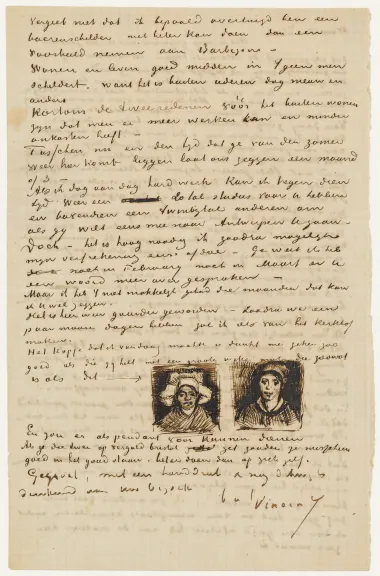 Vergeet niet dat ik bepaald overtuigd ben een
boerenschilder niet beter kan doen dan een
voorbeeld nemen aan Barbizon –
Wonen en leven goed midden in 't geen men
schildert, want het is buiten iederen dag nieuw en
anders.
Kortom de twee redenen vóór het buiten wonen
zijn dat men er meer werken kan en minder
onkosten heeft –
Tusschen nu en den tijd dat ge van den zomer
weer hier komt leggen laat ons zeggen een maand
of 3 –
Als ik dag aan dag hard werk kan ik tegen dien
tijd weer een 20tal studies voor U hebben
en bovendien een twintigtal anderen om
als gij wilt eens mee naar Antwerpen te gaan –
Doch – het is hoog noodig ik
mijn verfrekening – Ge weet ik heb
noch in Februarij noch in Maart er U
een woord meer over gesproken –
Maar is het 't niet makkelijk geweest die maanden dat kan
ik U wel zeggen.
Het is hier weer guurder geworden – zoodra we een
paar mooie dagen hebben zal ik iets van het kerkhof
maken.
Het kopje dat ik vandaag maakte
goed als die gij hebt met een
is als dit
En zou er als pendant voor kunnen dienen
Als ge die twee op verguld bristol zet zouden ze misschien
goed in het goud staan, beter doen dan op zich zelf.
Gegroet, met een handdruk & nog dikwijls
denkend aan uw bezoek
b. à t. Vincent